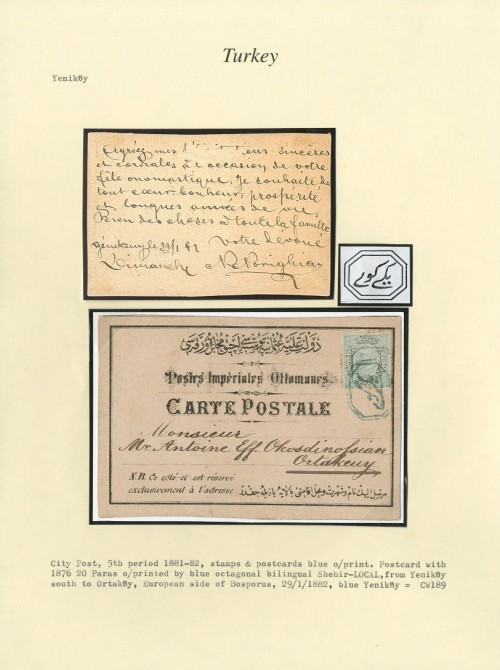 Turkey
Yeniköy
Agréez mes sincères
et cordiales à l'occasion de votre
fête onomastique. Je souhaite de
tout cœur bonheur, prospérité
et longues années de vie,
Bien des choses à toute la famille
Votre dévoué
Dimanche
يکی کوی
دولت علیه عثمانیه
Postes Impériales Ottomanes.
CARTE POSTALE
Monsieur
Mr. Antoine Eff. Okosdinossian
Ortakeuy
N.B. Ce côté-ci est réservé
exclusivement à l'adresse
City Post, 5th period 1881-82, stamps & postcards blue o/print. Postcard with
1876 20 Paras o/printed by blue octagonal bilingual Shehir-LOCAL,from Yeniköy
south to Ortaköy, European side of Bosporus, 29/1/1882, blue Yeniköy = CW189